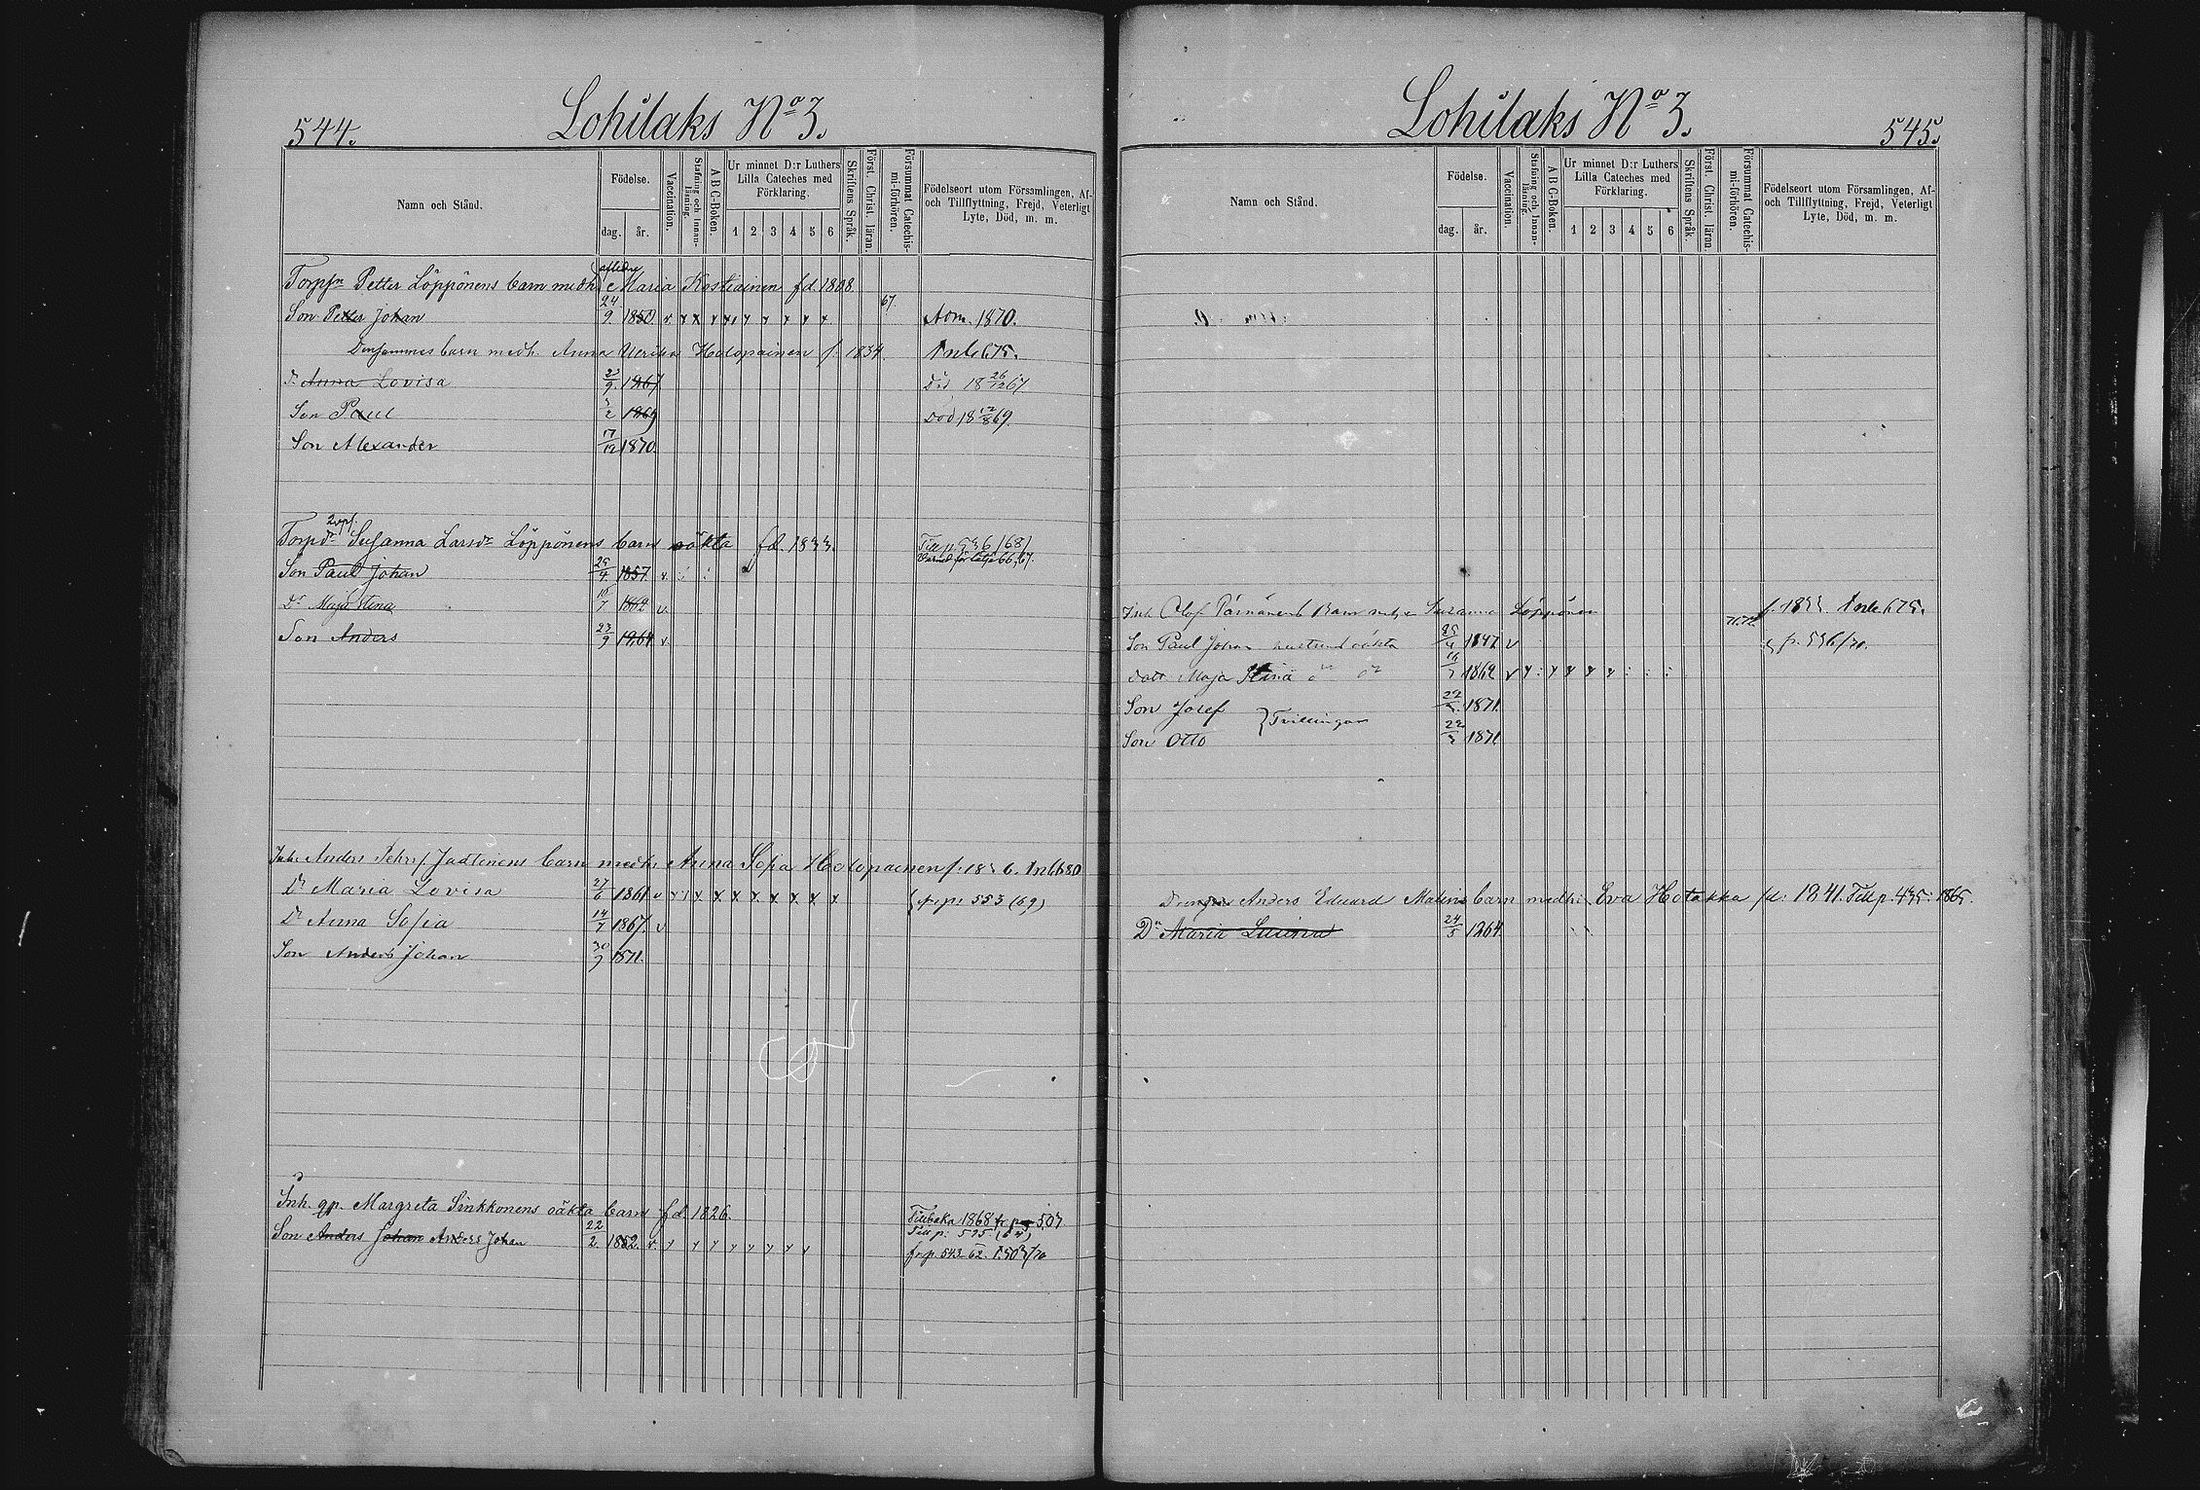 544.
Lohilaks No 3.
Namn och Stånd.
Födelse.
dag. år.
Vaccination.
Stafning och Innan-läsning.
A B C-Boken.
Ur minnet D:r Luthers Lilla Cateches med Förklaring.
1 2 3 4 5 6
Skriftens Språk.
Först. Christ. läran.
Försummat Catechis-mi-förhören.
Födelseort utom Församlingen, Af- och Tillflyttning, Frejd, Veterligt Lyte, Död, m. m.
aflidne
Torpn Petter Löppönens barn medh. Maria Kostiainen fd. 1808.
Son Petter Johan 24/9 1850 67 Adm. 1870.
Densammes barn medh. Anna Ulrika Holopainen f. 1834. Inl. 675.
Dr Anna Lovisa 23/9 1867 Död 18 26/12 67
Son Paul 1869 Död 18 12/8 69.
Son Alexander 17/12 1870
Torpdr Susanna Larsdr Löppönens barn oäkta fd. 1833. Till p. 536 (68)
Son Paul Johan 25/4 1857
Dr Maja Stina 16/7 1862
Son Anders 23/9 1864
Inh. Anders Pehrs. Jantunens barn medh. Anna Sofia Holopainen f. 1836. Inl. 680
Dr Maria Lovisa 27/6 1861 fr. p. 553 (69)
Dr Anna Sofia 14/7 1867
Son Anders Johan 30/9 1871.
Inh. qp. Margreta Sinkkonens oäkta barn fd. 1826. Tillbaka 1868 fr. pag 507
Till p. 575. (64)
Son Anders Johan Anders Johan 22/2 1852. fr. p. 543 62.
545.
Lohilaks No 3.
Namn och Stånd.
Födelse.
dag. år.
Vaccination.
Stafning och Innan-läsning.
A B C-Boken.
Ur minnet D:r Luthers Lilla Cateches med Förklaring.
1 2 3 4 5 6
Skriftens Språk.
Först. Christ. läran.
Försummat Catechis-mi-förhören.
Födelseort utom Församlingen, Af- och Tillflyttning, Frejd, Veterligt Lyte, Död, m. m.
Inh. Olof Pärnänens Barn Susanna Löppönen f. 1833. Inl. 675.
Son Paul Johan hustruns oäkta 25/4 1857 fr. p. 536/70.
Dotr Maja Stina 16/7 1862
Son Josef } Tvillingar 22/3 1871
Son Otto 22/3 1871
Drängen Anders Eduard Malins barn medh. Eva Hotakka fd. 1841. Till p. 435: 1865.
Dr Maria Lusina 24/5 1864